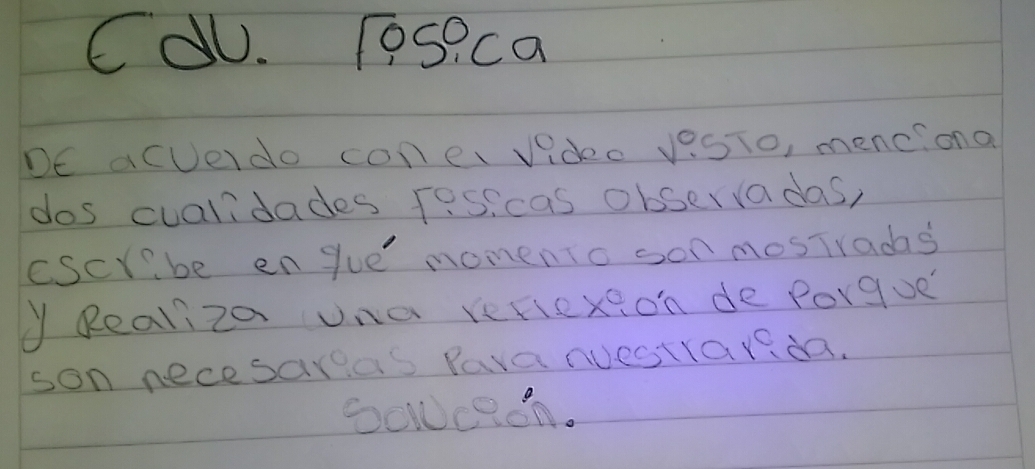 Edu. Física
De acuerdo con el video visto, menciona
dos cualidades físicas observadas,
escribe en qué momento son mostradas
y Realiza una reflexión de Porqué
son necesarias Para nuestra vida.
Solución.